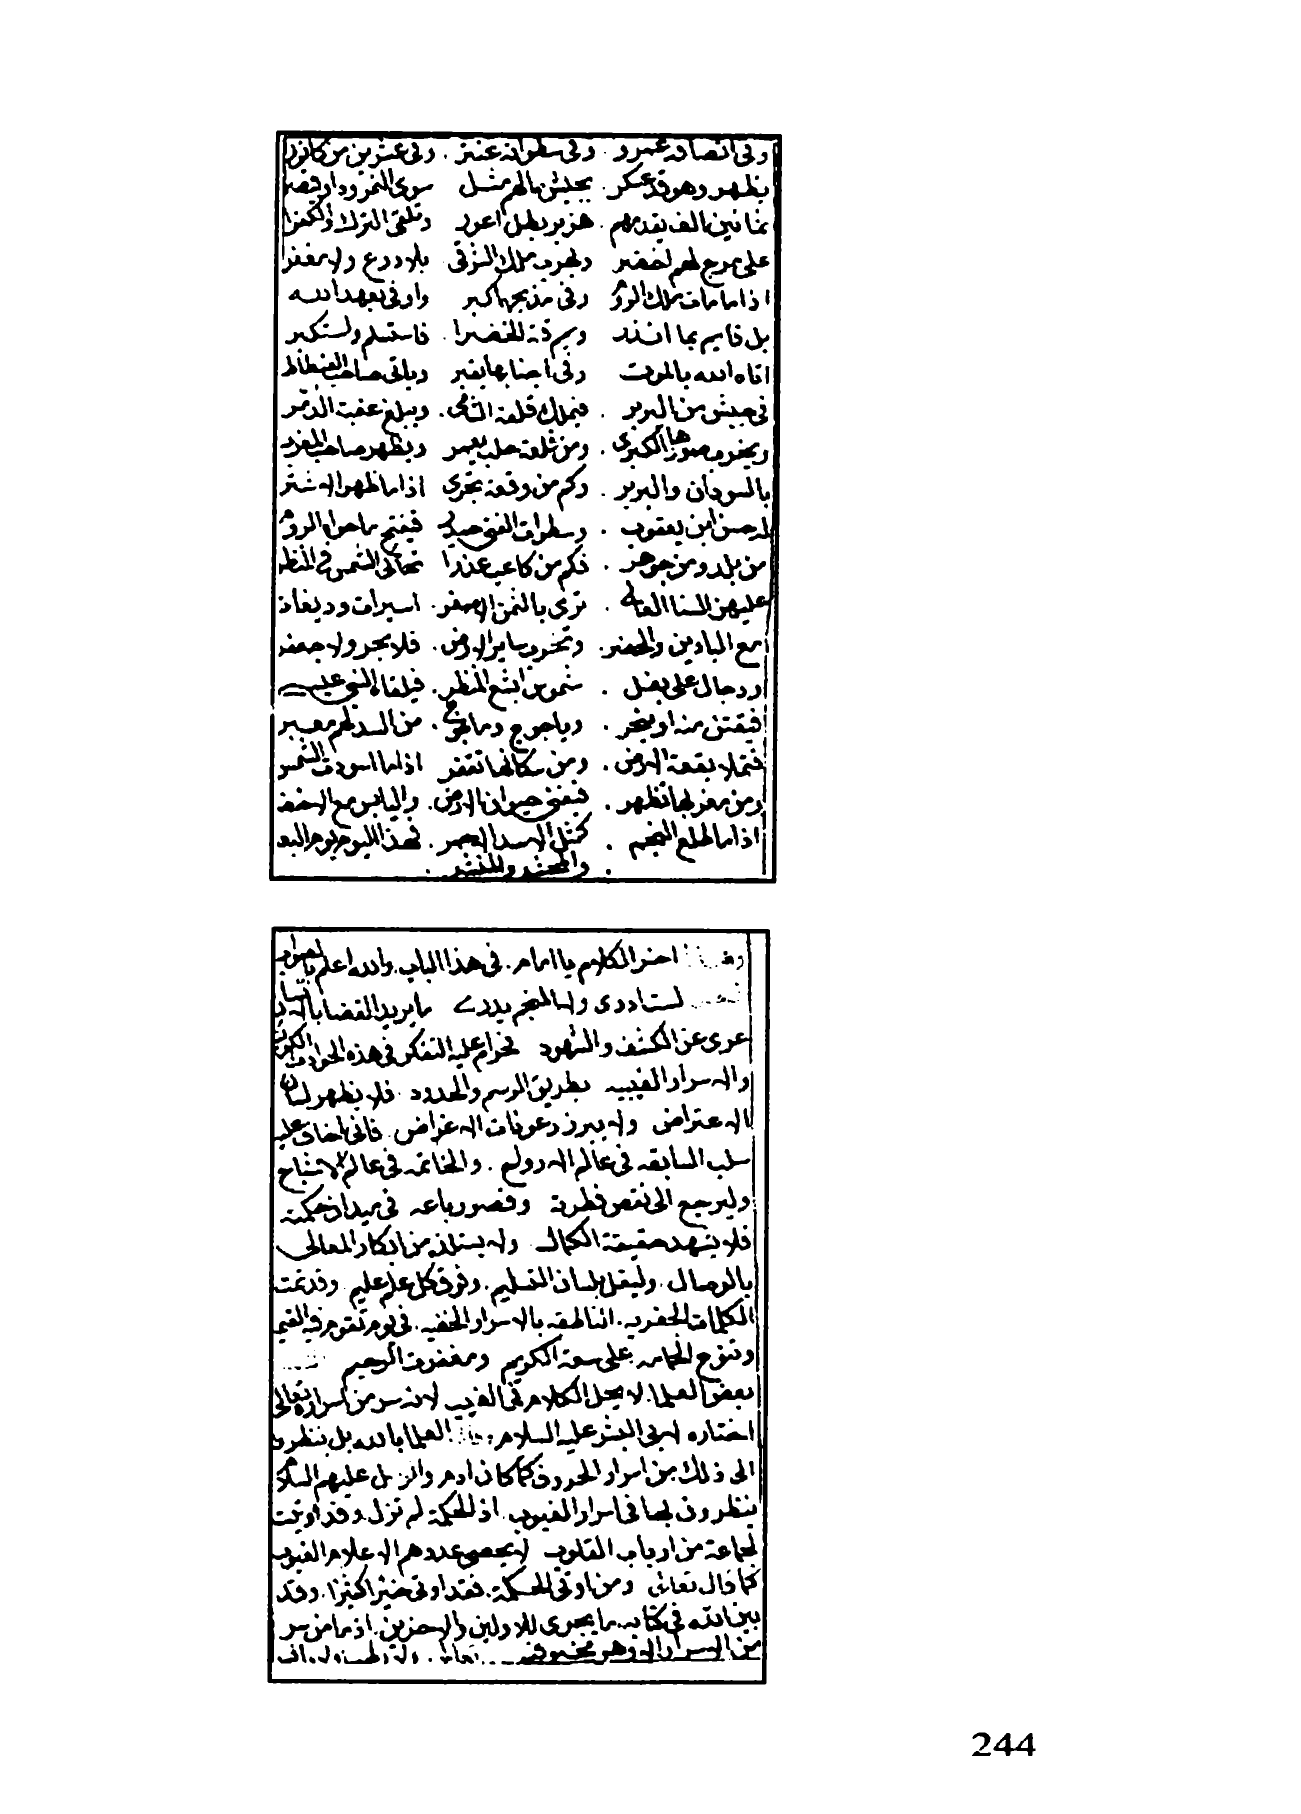 وفي انصافه عمرو . وفي سطواته عنتر . وفي عشرين من كانون
يظهر وهو قد عسكر . بجيش يالهم مثل سوى النمرود او قيصر
ثمانين الف يقدمهم . هزبر بطل اعور وتلقى الترك والكفرا
على مرج لهم اخضر ويهرب ملك الشرقي بلا درع ولا مغفر
اذا ما مات ملك الروم وفي مذبحها كبر واوفى بعهد الله
بل قايم بما انذر فاستسلم واستكبر
اتاه الله بالموت وفي اجنابها يقبر وياتي صاحب الفسطاط
في جيش من البربر . فيملك قلعة الشامي . ويبلغ عقبة الدمر
ويخرب صورها الكبرى . ومن ثلمة حلب يعبر ويظهر صاحب المغرب
بالسودان والبربر . وكم من وقعة تجري اذا ما ظهر الاشتر
لدحسن ابن يعقوب . وسطوات الفتى حيدر فيفتح ما حواه الروم
من بلد ومن جوهر . فكم من كاعب عذرا تحاكي الشمس في المنظر
عليهن السنا العالي . ترى بالثمن الاصفر . اسيرات وديعات
مع البادين والحضر . وتخرب ساير الارض . فلا بحر ولا جعفر
ودجال على بغل . شموس ابشع المنظر . فيلقاه النبي عيسى
فيقتن منه او يخر . وياجوج وماجوج . من السد لهم معبر
فتملا بقعة الارض . ومن سكانها تقفر اذا ما اسودت الشمس
ومن مغربها تظهر . فيفنى حيوان الارض . واليابس مع الاخضر
اذا ما طلع النجم . كمثل الاسد الاحمر . فهذا اليوم يوم البعث
. والمحشر والمنشر .
اخر الكلام يا امام . في هذا الباب . والله اعلم بالصواب
لست ادري ولا المنجم يدري ما يريد القضا بالانسان
عري عن الكشف والشهود فحرام عليه التفكر في هذه الحوادث الكونية
والاسرار الغيبيه بطريق الرسم والحدود فلا يظهر لسان
الاعتراض ولا يبرز دعونات الاغراض . فاني اخاف عليه
سلب السابقه في عالم الارواح . والخاتمه في عالم الاشباح
وليرجع الى نقص فطرته وقصور باعه في ميدان حكمته
فلا يشهد حقيقة الكمال ولا يستلذ من ابكار المعالي
بالوصال . وليقل بلسان التسليم . وفوق كل علم عليم . وقد تمت
الكلمات الجفريه . الناطقه بالاسرار الخفيه . في يوم تقوم فيه القيمه
على سعة الكريم ومغفرت الرحيم
بعض العلما . لا يحل الكلام في الغيب لانه سر من اسراره تعالى
اختاره لابي البشر عليه السلام . العلما بالله بل ينظرون
الى ذلك من اسرار الحروف كما كان ادم والرسل عليهم السلام
ينظرون بها في اسرار الغيوب . اذ الحكمة لم تزل . وقد اوتيت
لجماعة من ارباب القلوب لا يحصي عددهم الا علام الغيوب
كما قال تعالى ومن اوتي الحكمة . فقد اوتي خيرا كثيرا . وقد
بين الله في كتابه . ما يجري للاولين والاخرين . اذ ما من سر
من الاسرار الا وهو مخبو فيه
244